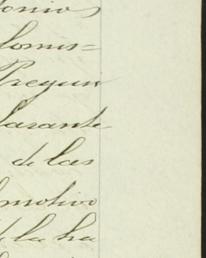 tonio
lomis=
Pregun
larante
de las
l motivo
de la ha